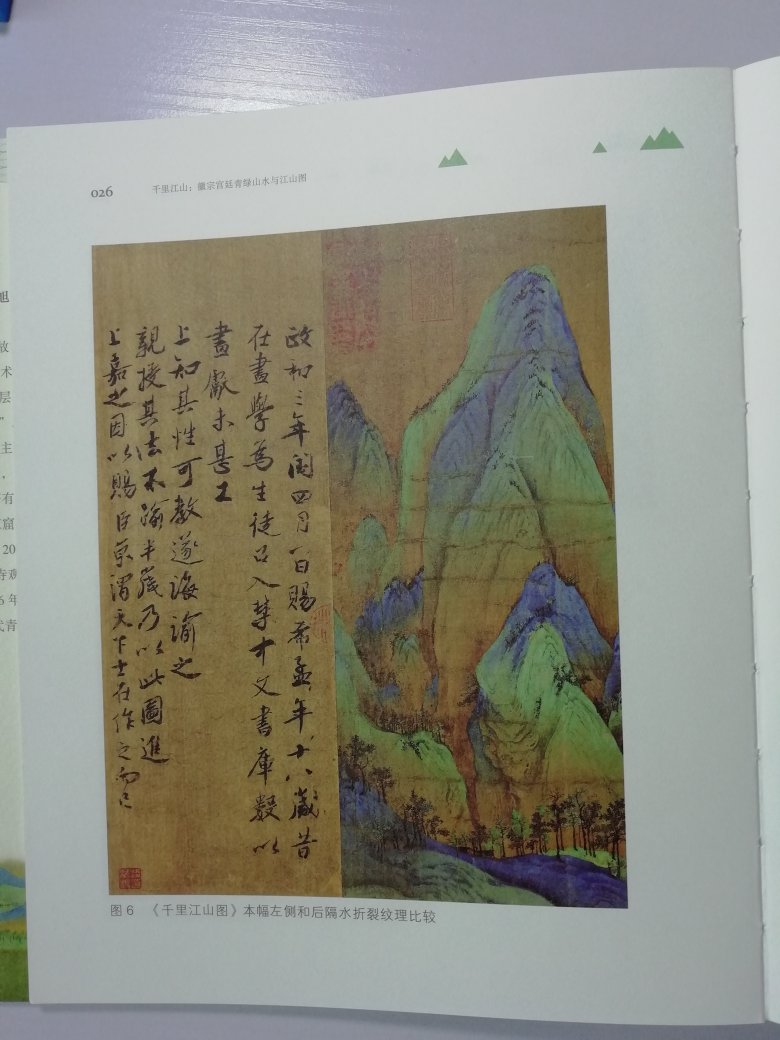 026
千里江山：徽宗宫廷青绿山水与江山图
政和三年閏四月一日賜希孟年十八歲昔
在畫學為生徒召入禁中文書庫數以
畫獻未甚工
上知其性可教遂誨諭之
親授其法不踰半歲乃以此圖進
上嘉之因以賜臣京謂天下士在作之而已
图 6 《千里江山图》本幅左侧和后隔水折裂纹理比较